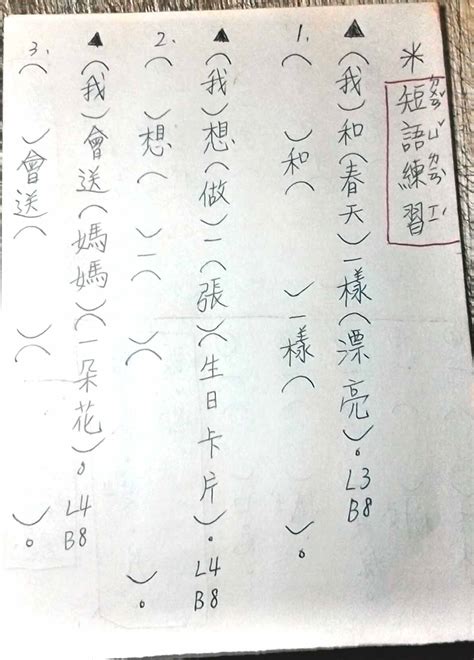 米 短語練習 ㄉㄨㄢˇ ㄩˇ ㄌㄧㄢˋ ㄒㄧˊ
▲(我)和(春天)一樣(漂亮)。L3 B8
1. ( )和( )一樣( )。
▲(我)想(做)一(張)(生日卡片)。L4 B8
2. ( )想( )一( )( )。
▲(我)會送(媽媽)(一朵花)。L4 B8
3. ( )會送( )( )。